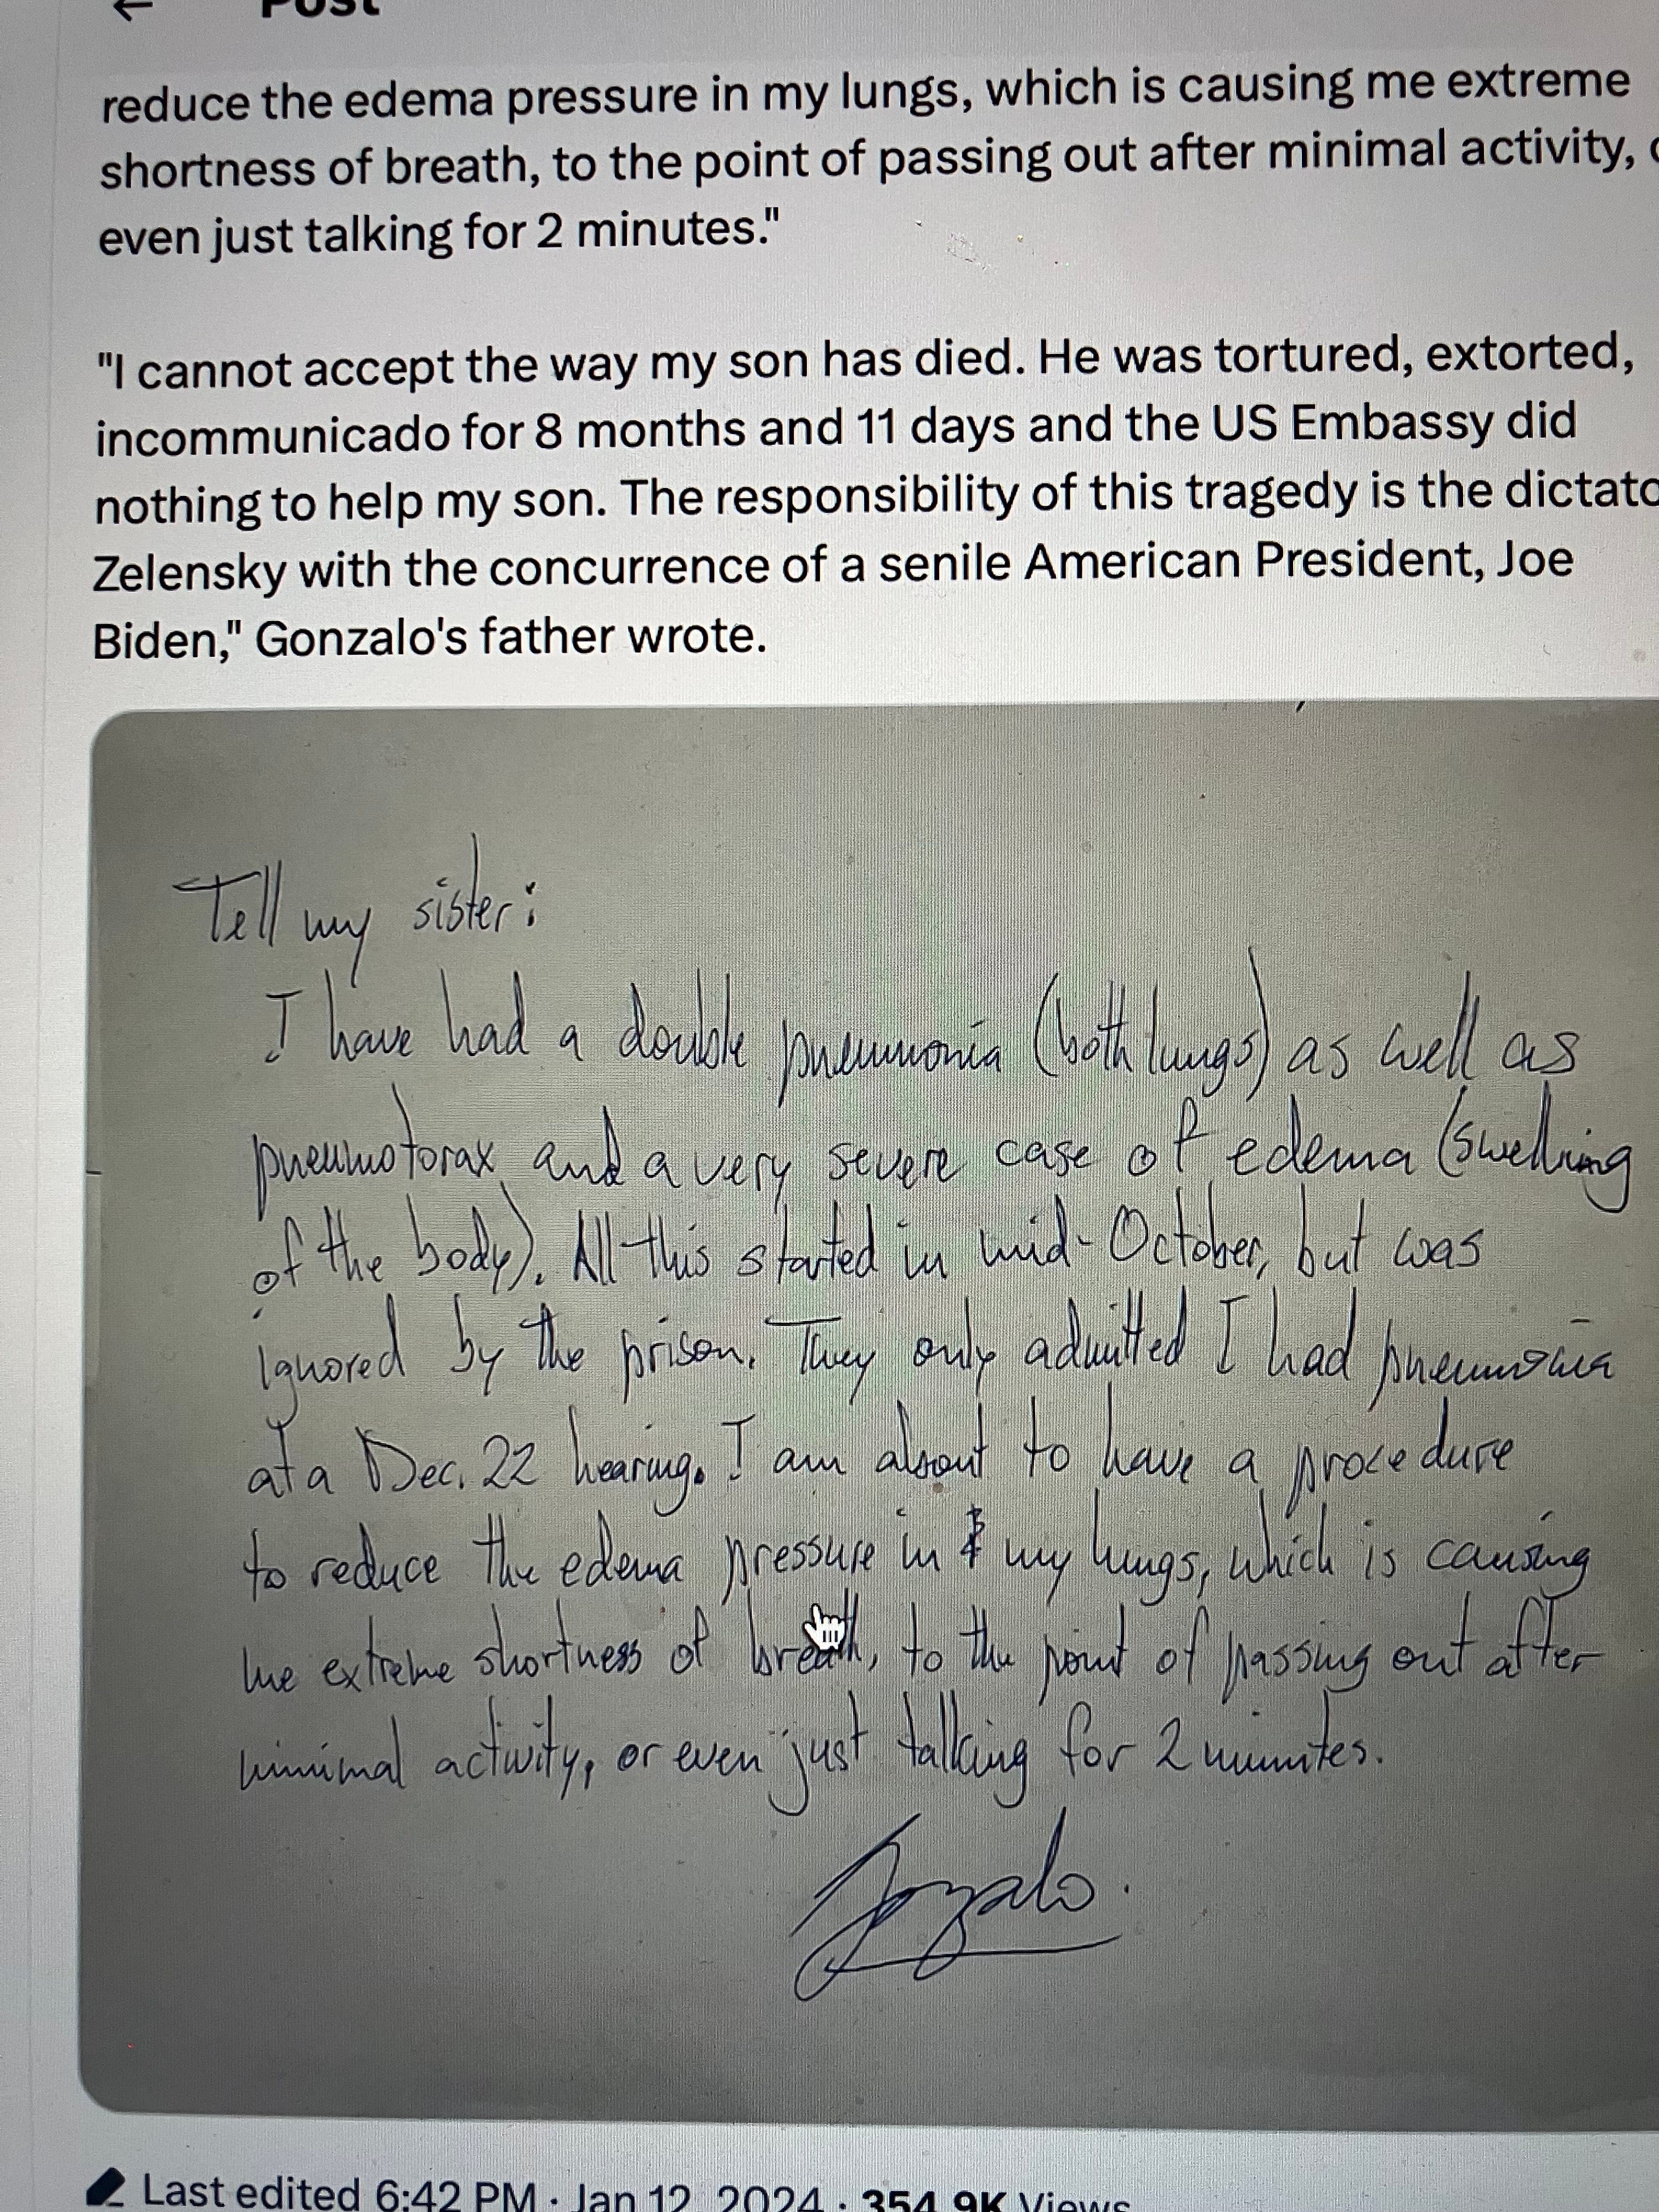 ← Post
reduce the edema pressure in my lungs, which is causing me extreme
shortness of breath, to the point of passing out after minimal activity,
even just talking for 2 minutes."
"I cannot accept the way my son has died. He was tortured, extorted,
incommunicado for 8 months and 11 days and the US Embassy did
nothing to help my son. The responsibility of this tragedy is the dictato
Zelensky with the concurrence of a senile American President, Joe
Biden," Gonzalo's father wrote.
Tell my sister:
I have had a double pneumonia (both lungs) as well as
pneumotorax and a very severe case of edema (swelling
of the body). All this started in mid-October, but was
ignored by the prison. They only admitted I had pneumonia
at a Dec. 22 hearing. I am about to have a procedure
to reduce the edema pressure in my lungs, which is causing
me extreme shortness of breath, to the point of passing out after
minimal activity, or even just talking for 2 minutes.
Gonzalo.
Last edited 6:42 PM · Jan 12, 2024 · 354.9K Views